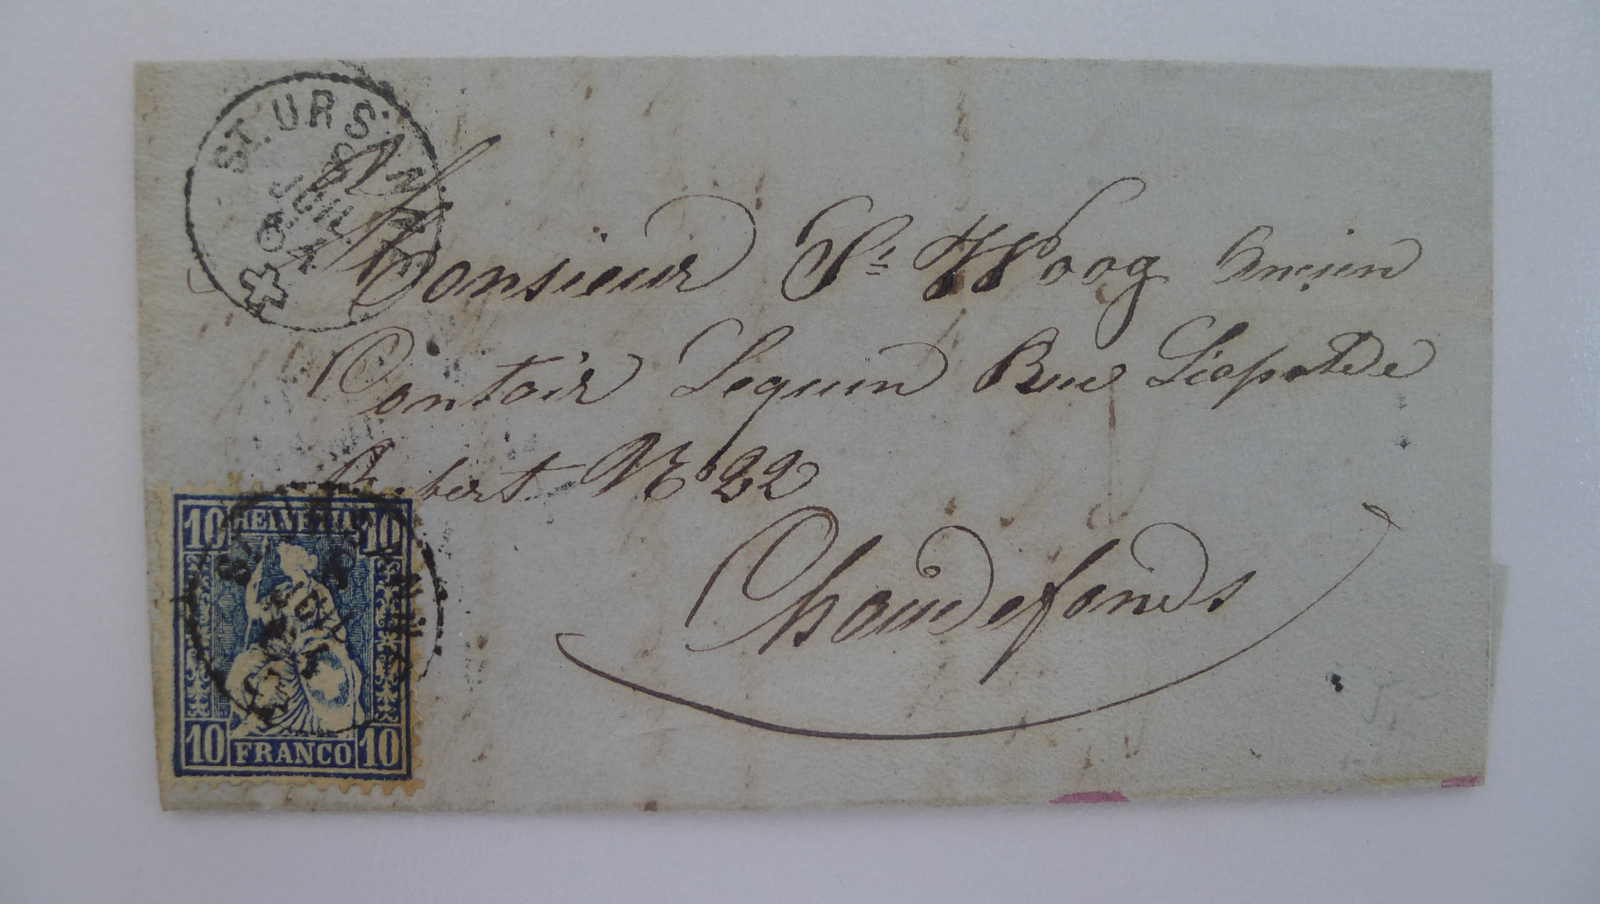 ST. URSANNE
8
JUIL
64
Monsieur Ss Woog Ancien
Contoir Sequin Rue Léopolde
Robert No 22
Chaudefonds
10 HELVETIA 10
10 FRANCO 10